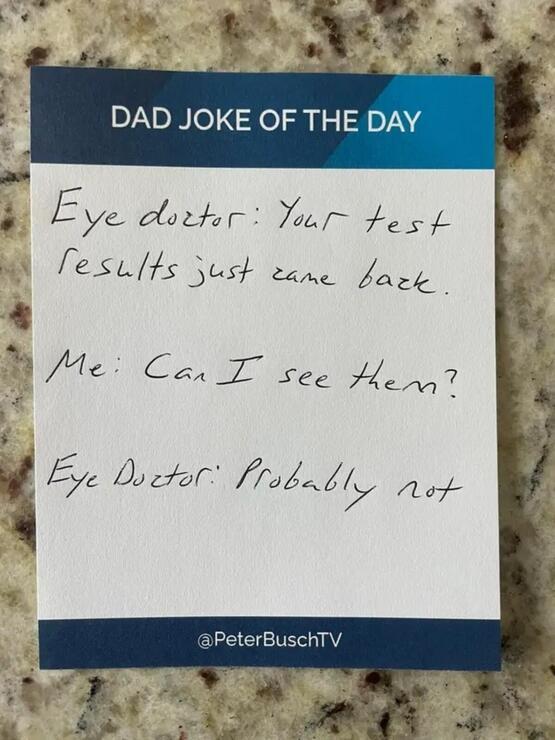 DAD JOKE OF THE DAY
Eye doctor: Your test
results just came back.
Me: Can I see them?
Eye Doctor: Probably not
@PeterBuschTV